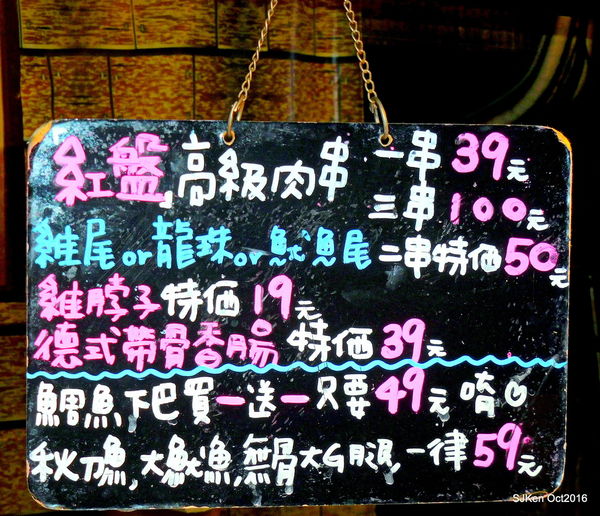 紅盤,高級肉串 一串39元
三串100元
雞尾or龍珠or魷魚尾 二串特価50元
雞脖子特価19元
德式帶骨香腸 特価39元
鯛魚下巴買一送一只要49元唷
秋刀魚,大魷魚,無骨大G腿,一律59元
SJKen Oct2016